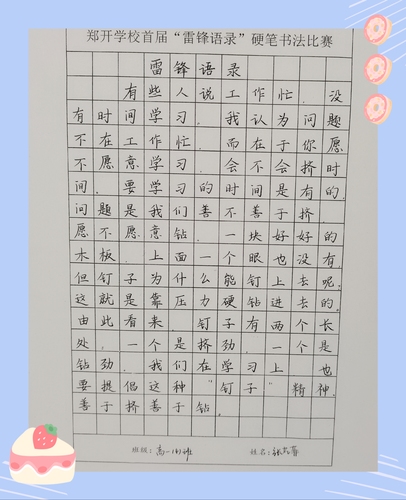 郑开学校首届“雷锋语录”硬笔书法比赛
雷锋语录
有些人说工作忙、没
有时间学习。我认为问题
不在工作忙。而在于你愿
不愿意学习。会不会挤时
间。要学习的时间是有的。
问题是我们善不善于挤。
愿不愿意钻。一块好好的
木板。上面一个眼也没有。
但钉子为什么能钉上去呢。
这就是靠压力硬钻进去的。
由此看来。钉子有两个长
处。一个是挤劲。一个是
钻劲。我们在学习上 也
要提倡这种“钉子”精神。
善于挤善于钻。
班级：高一(1)班 姓名：张